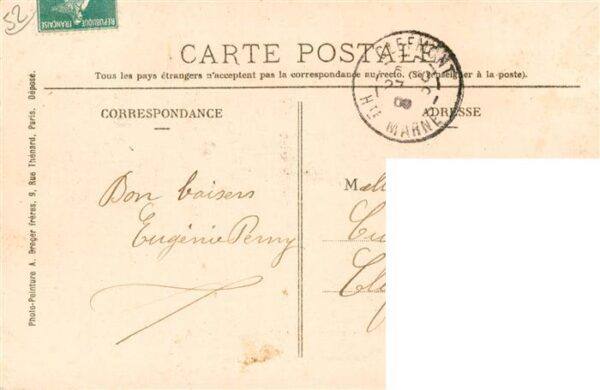 52
RÉPUBLIQUE FRANÇAISE
CARTE POSTALE
Tous les pays étrangers n'acceptent pas la correspondance au recto. (Se renseigner à la poste).
CLEFMONT
HTE MARNE
CORRESPONDANCE
ADRESSE
Bon baisers
Eugénie Perny
Photo-Peinture A. Breger frères, 9, Rue Thénard, Paris. Déposé.